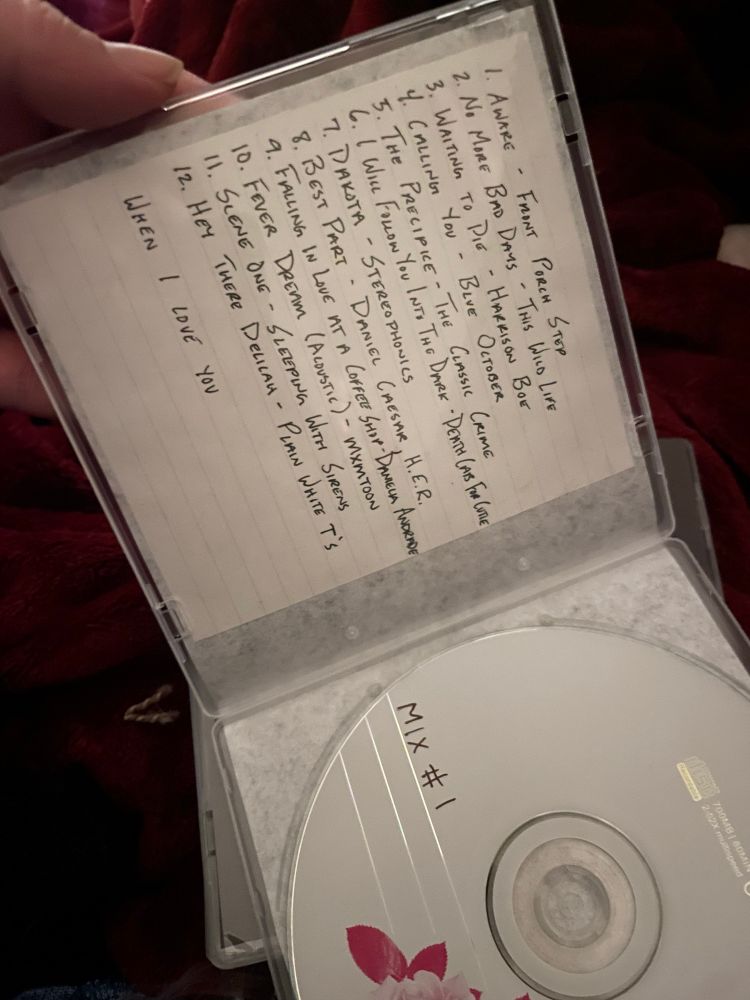 1. AWARE - FRONT PORCH STEP
2. NO MORE BAD DAYS - THIS WILD LIFE
3. WAITING TO DIE - HARRISON BOE
4. CALLING YOU - BLUE OCTOBER
5. THE PRECIPICE - THE CLASSIC CRIME
6. I WILL FOLLOW YOU INTO THE DARK - DEATH CAB FOR CUTIE
7. DAKOTA - STEREOPHONICS
8. BEST PART - DANIEL CAESAR H.E.R.
9. FALLING IN LOVE AT A COFFEE SHOP - DANIELA ANDRADE
10. FEVER DREAM (ACOUSTIC) - MXMTOON
11. SCENE ONE - SLEEPING WITH SIRENS
12. HEY THERE DELILAH - PLAIN WHITE T'S
WHEN I LOVE YOU
MIX #1
700MB | 80MIN
2-52X multispeed